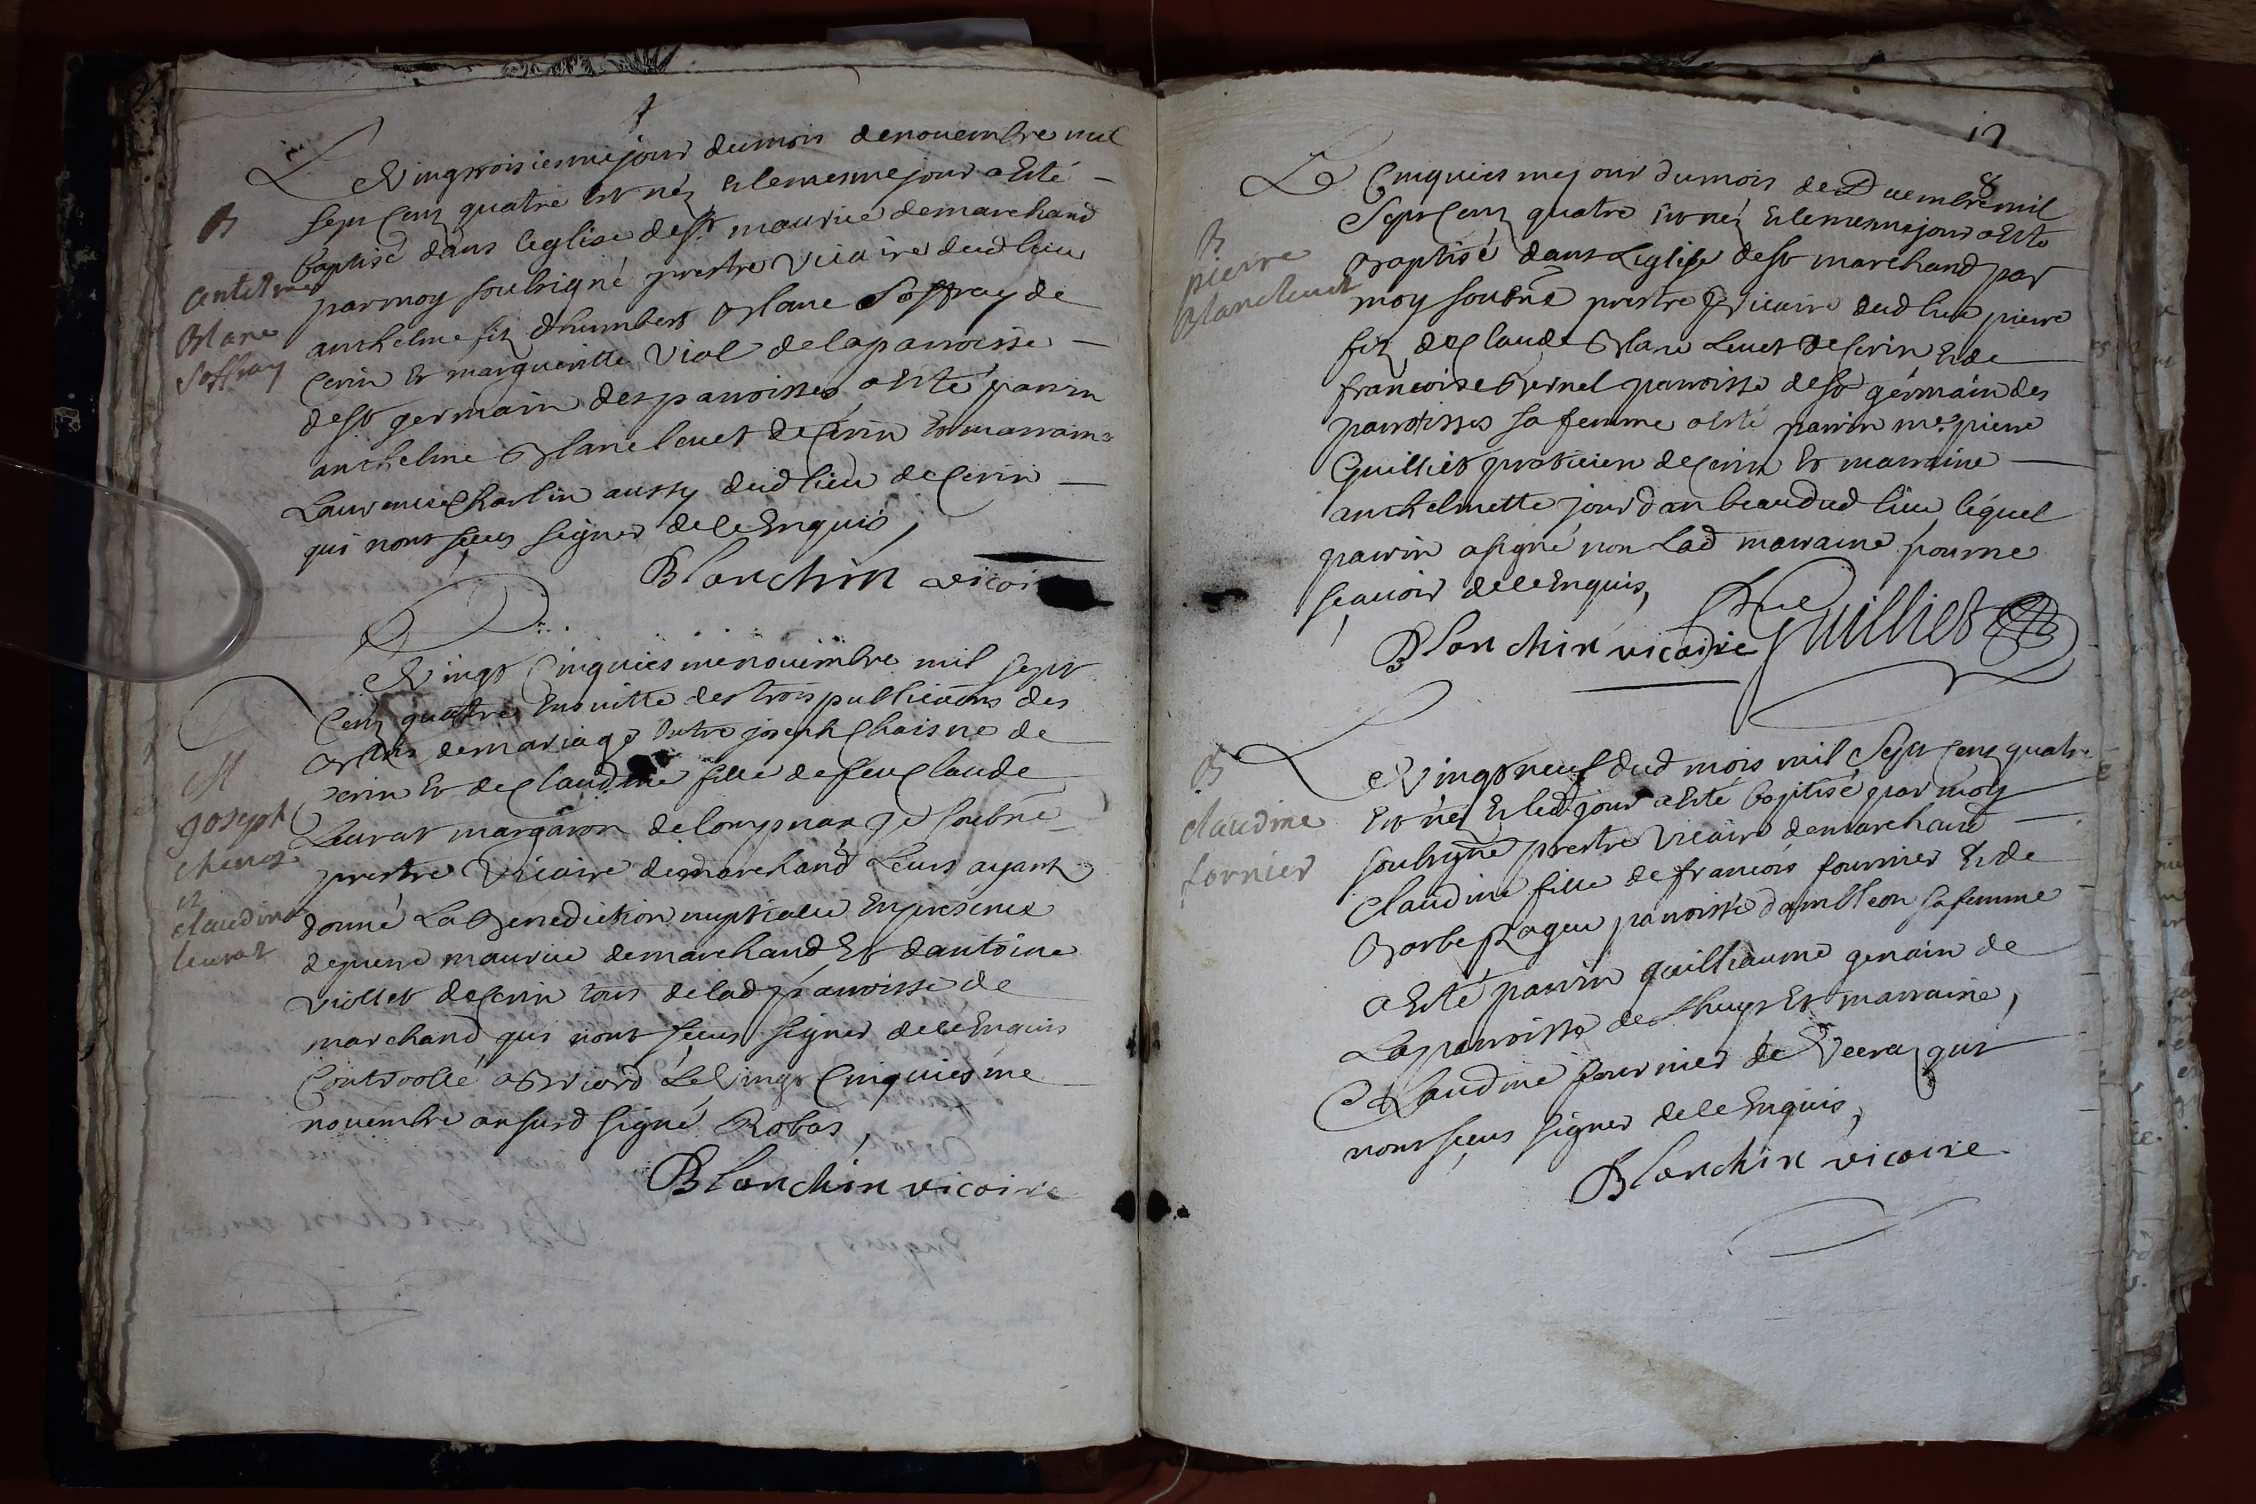 Le vingtroisiesme jour du mois de novembre mil
sept cenz quatre est néz et le mesme jour a esté
baptisé dans leglise de st maurice de marchand
par moy soubsigné prestre vicaire dud lieu
anthelme fiz dhumbert blanc Soffray de
Cerin et margueritte Viol de la parroisse
de st germain des parroisses, a esté parrin
anthelme blanc leuet de Cerin et marraine
Laurence Charlin aussy dud lieu de Cerin
qui nont sçeus signer de ce enquis,
Blanchin vicai
B
antelme
blanc
Soffray
Le vingt cinquiesme novembre mil sept
cenz quatre ensuitte des trois publicaons des
bans de mariage entre joseph Chaisne de
Cerin et de Claudine fille de feu Claude
Laurat margaron de lompnaz je soubsné
prestre Vicaire de marchand Leurs ayant
donné La benediction nuptialle en presence
de pierre maurice de marchand et dantoine
Viollet de Cerin tous de lad parroisse de
marchand qui nont sçeus signer de ce enquis
Controollé a briord Le vingt Cinquiesme
novembre an susd signé Robas,
Blanchin vicaire
M
joseph
et
claudine
leurat
17
8
Le Cinquiesme jour du mois de Decembre mil
Sept Cenz quatre est néz et le mesme jour a esté
baptisé dans Leglise de st marchand par
moy soubsné prestre et vicaire dud lieu pierre
fiz de Claude blanc Leuet de Cerin et de
francoise bernel parroisse de st germain des
parroisses sa femme a esté parrin me pierre
Guilliet praticien de Cerin et marraine
anthelmette jourdan beau dud lieu lequel
parrin a signé non Lad marraine pour ne
sçavoir de ce enquis,
Blanchin vicaire Guilliet
B
pierre
blancleuet
Le vingt neuf dud mois mil Sept Cenz quatre
est néz et led jour a esté baptisé par moy
soubsigné prestre Vicaire de marchand
Claudine fille de francois fournier et de
barbe Rageu parroisse dambleon sa femme
a esté parrin guilliaume genain de
La parroisse de Lhuys et marraine,
Claudine fournier de Veeraz qui
nont sçeus signer de ce enquis,
Blanchin vicaire
B
claudine
fornier